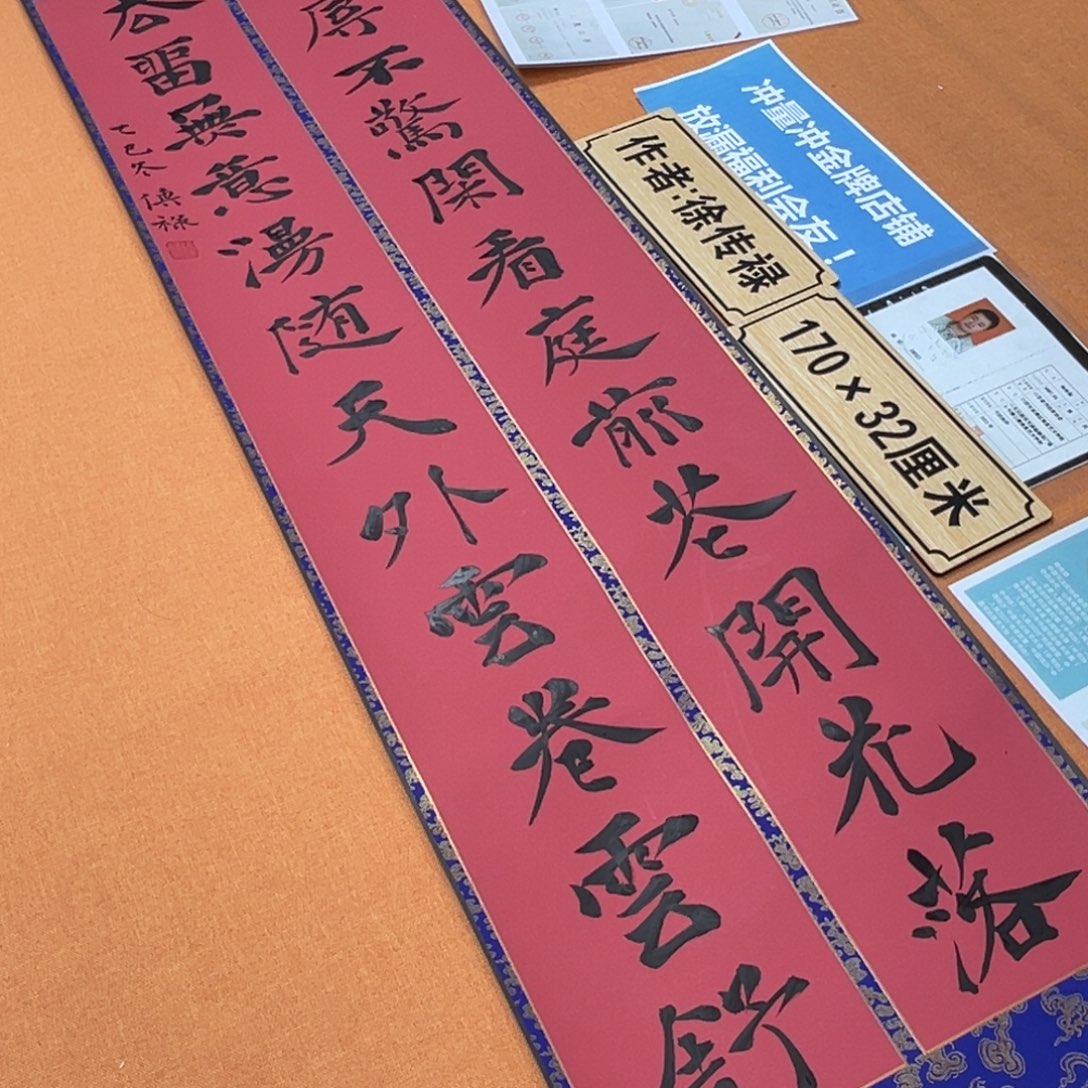 辱不驚閑看庭前花開花落
去留無意漫随天外雲卷雲舒
乙巳冬 傳禄
作者:徐传禄
170×32厘米
冲量冲金牌店铺
放漏福利会友!